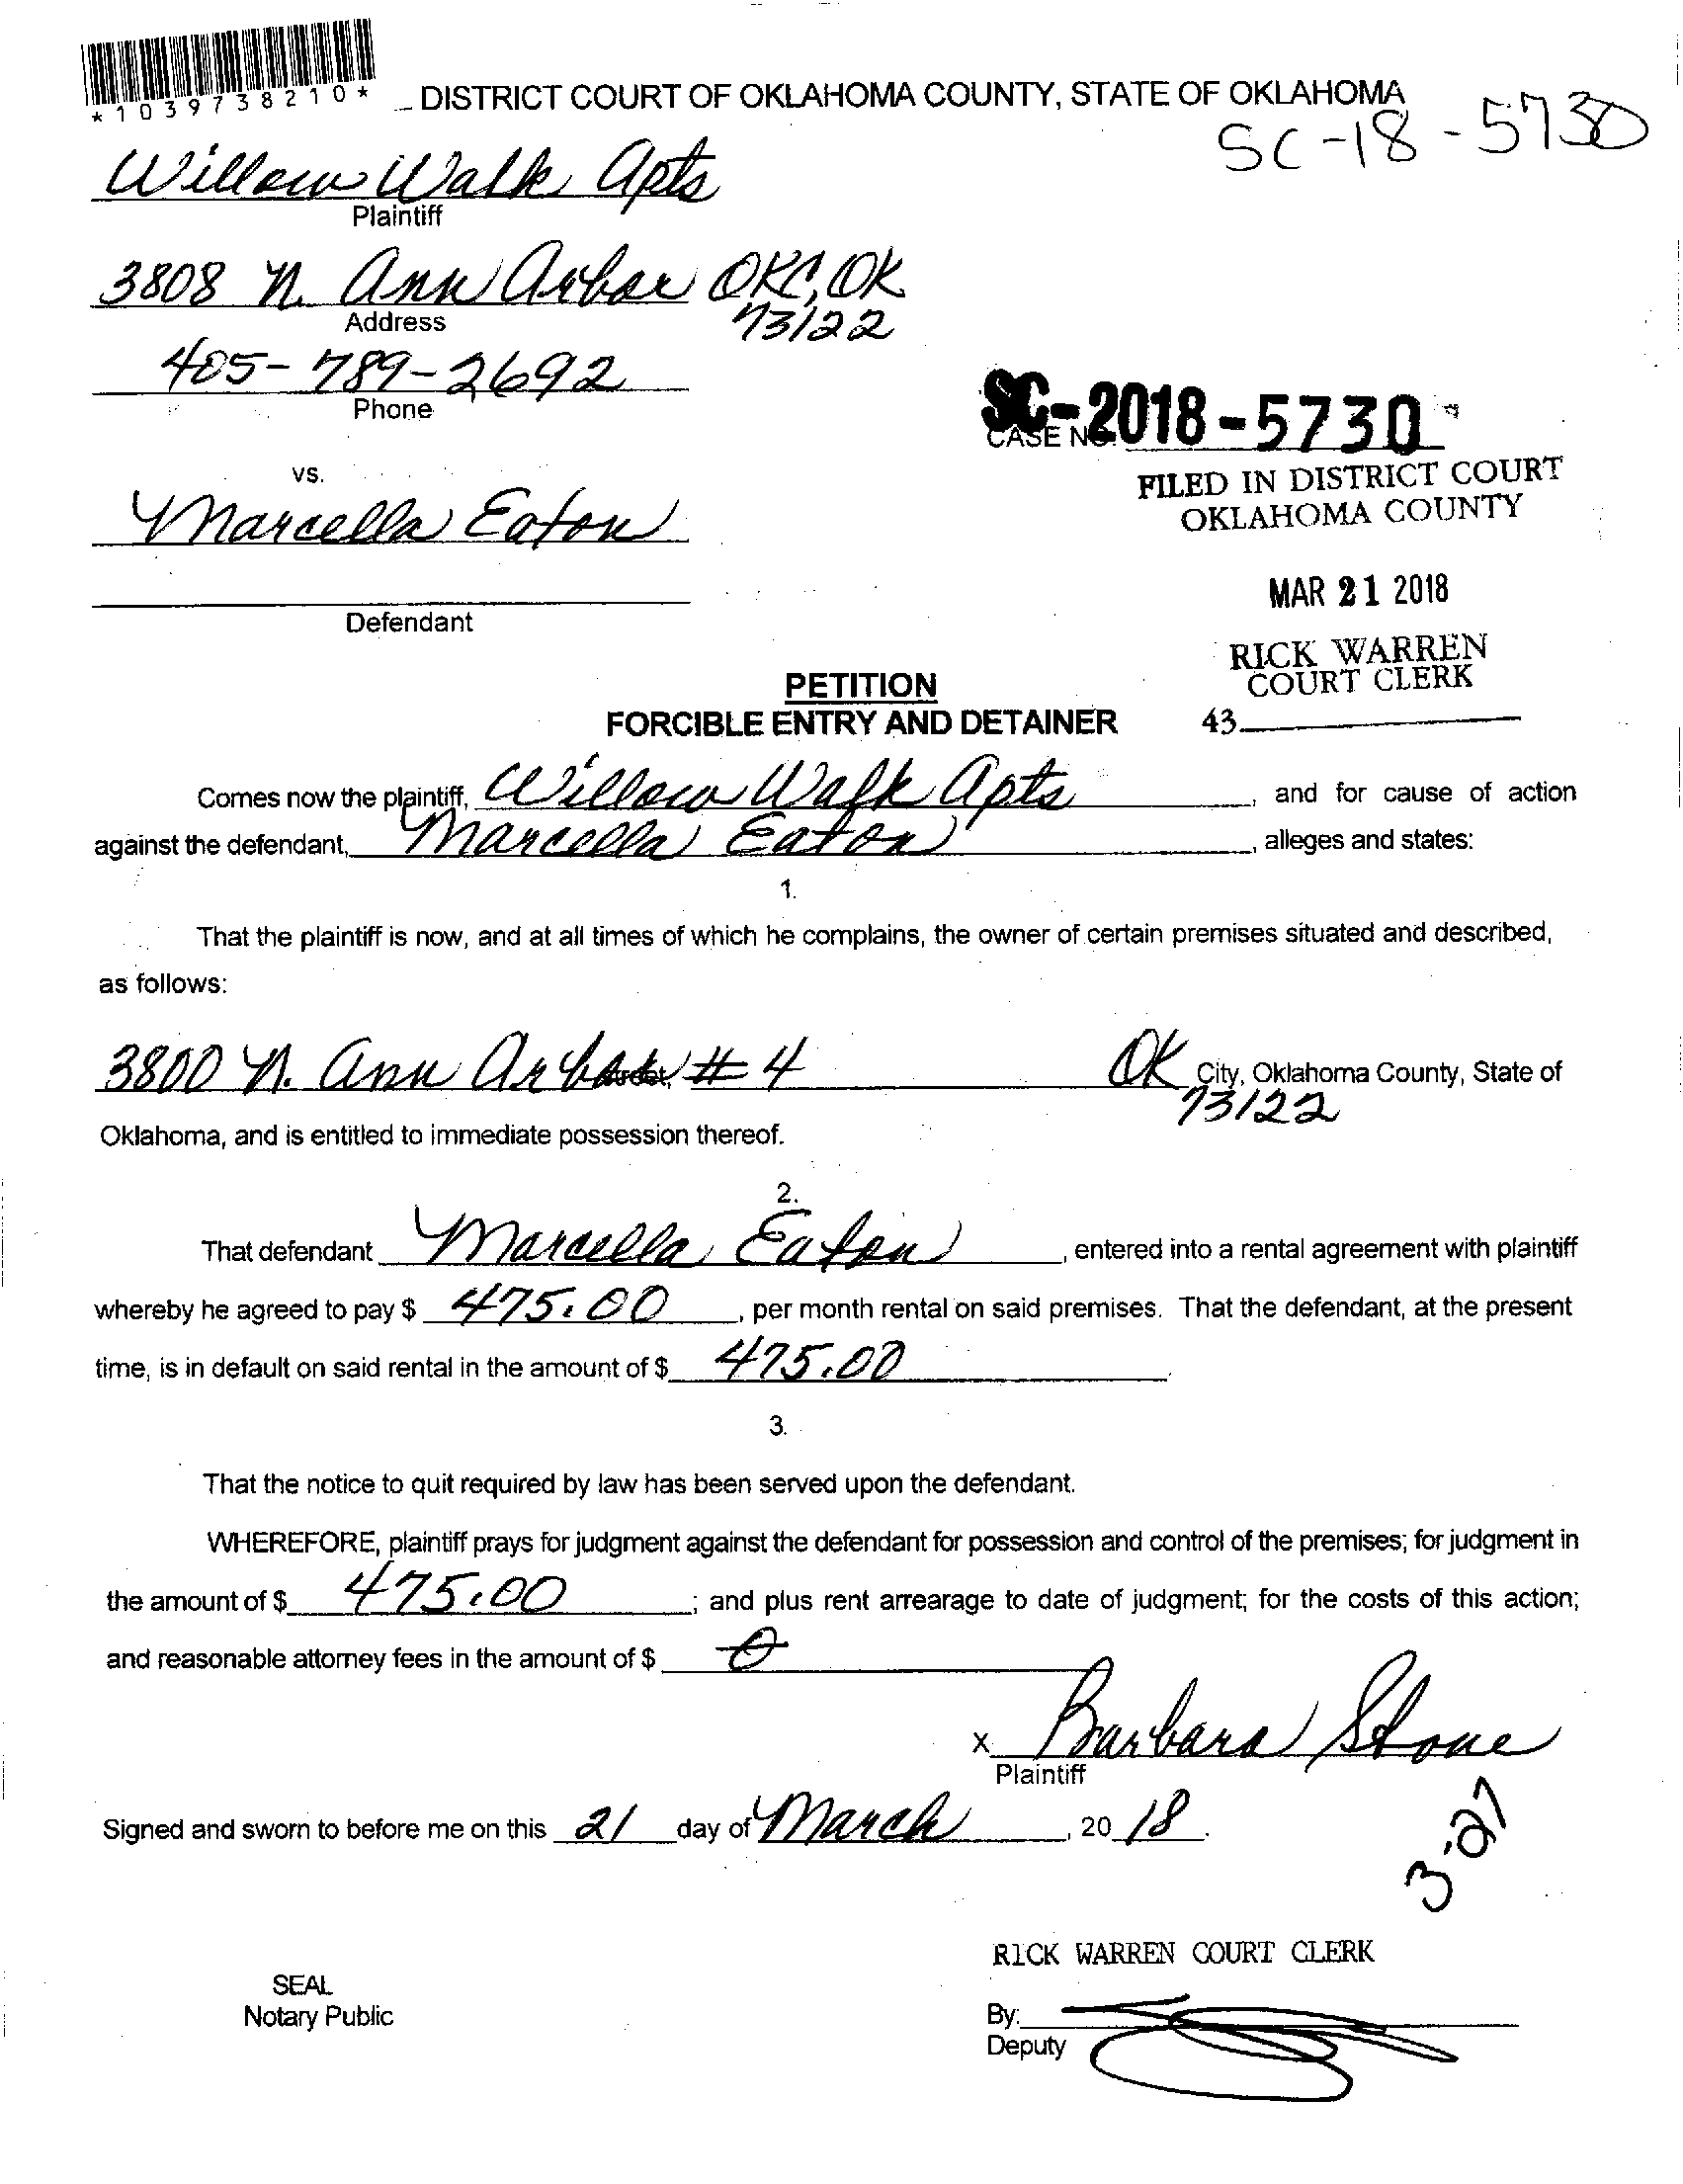 *1039738210*
DISTRICT COURT OF OKLAHOMA COUNTY, STATE OF OKLAHOMA
SC-18-5730
Willow Walk Apts
Plaintiff
3808 N. Ann Arbor OKC, OK
73122
Address
405-789-2692
Phone
SC-2018-5730
CASE NO.
FILED IN DISTRICT COURT
OKLAHOMA COUNTY
vs.
Marcella Eaton
MAR 21 2018
Defendant
RICK WARREN
COURT CLERK
43
PETITION
FORCIBLE ENTRY AND DETAINER
Comes now the plaintiff, Willow Walk Apts, and for cause of action
against the defendant, Marcella Eaton, alleges and states:
1.
That the plaintiff is now, and at all times of which he complains, the owner of certain premises situated and described,
as follows:
3800 N. Ann Arbor Street, # 4 OK City, Oklahoma County, State of
73122
Oklahoma, and is entitled to immediate possession thereof.
2.
That defendant Marcella Eaton, entered into a rental agreement with plaintiff
whereby he agreed to pay $ 475.00, per month rental on said premises. That the defendant, at the present
time, is in default on said rental in the amount of $ 475.00.
3.
That the notice to quit required by law has been served upon the defendant.
WHEREFORE, plaintiff prays for judgment against the defendant for possession and control of the premises; for judgment in
the amount of $ 475.00; and plus rent arrearage to date of judgment; for the costs of this action;
and reasonable attorney fees in the amount of $ 0
x Barbara Stone
Plaintiff
Signed and sworn to before me on this 21 day of March, 20 18.
3-27
RICK WARREN COURT CLERK
SEAL
Notary Public
By:
Deputy